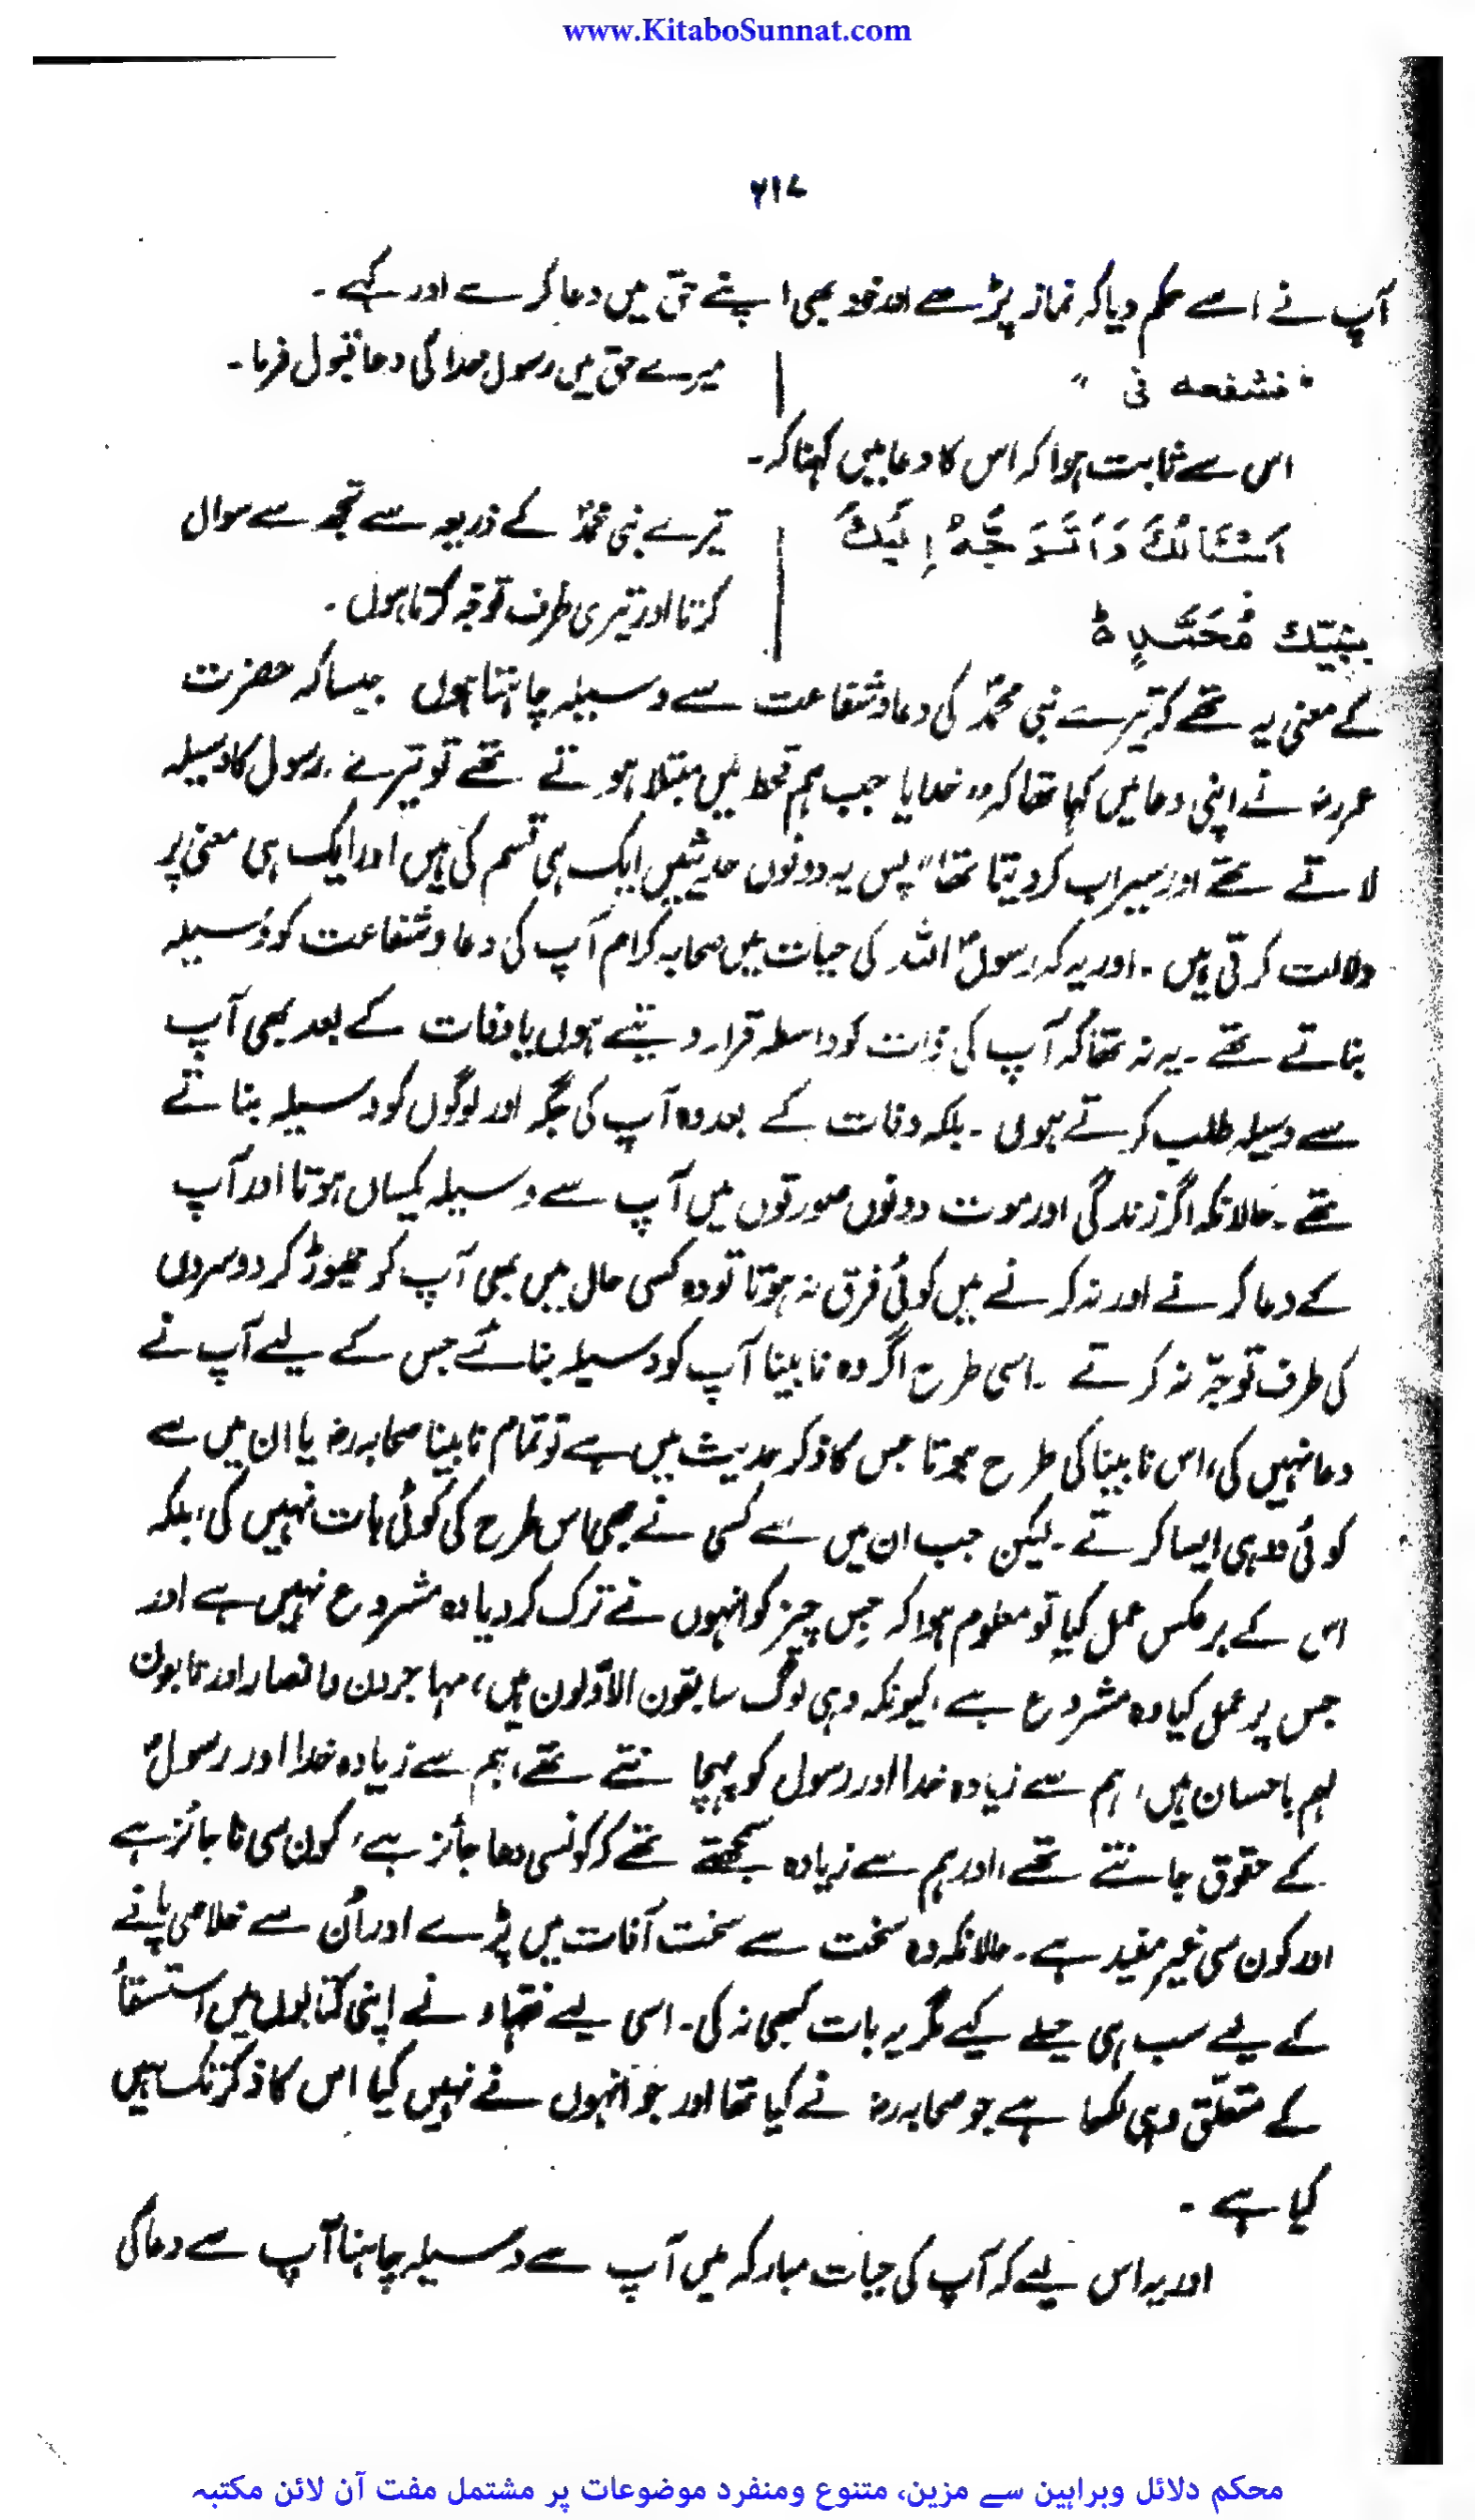 www.KitaboSunnat.com
۶۱۷
آپ نے اسے حکم دیا کہ نماز پڑھے اور خود بھی اپنے حق میں دعا کرے اور کہے ۔
"فشفعه فی"
میرے حق میں رسول خدا کی دعا قبول فرما ۔
اس سے ثابت ہوا کہ اس کا دعا میں کہنا کہ ۔
اَسْئَالُكَ وَاَتَوَجَّهُ اِلَيْكَ
تیرے نبی محمدؐ کے ذریعہ سے تجھ سے سوال
بِنَبِيِّكَ مُحَمَّدٍ ہ
کرتا اور تیری طرف توجہ کرتا ہوں ۔
کے معنی یہ تھے کہ تیرے نبی محمدؐ کی دعا و شفاعت سے وسیلہ چاہتا ہوں جیسا کہ حضرت
عمررضؓ نے اپنی دعا میں کہا تھا کہ "خدایا جب ہم قحط میں مبتلا ہوتے تھے تو تیرے رسول کا وسیلہ
لاتے تھے اور سیراب کر دیتا تھا" پس یہ دونوں حدیثیں ایک ہی قسم کی ہیں اور ایک ہی معنی پر
دلالت کرتی ہیں ۔ اور یہ کہ رسولؐ اللہ کی حیات میں صحابہ کرام آپ کی دعا و شفاعت کو وسیلہ
بناتے تھے ۔ یہ نہ تھا کہ آپ کی ذات کو واسطہ قرار دیتے ہوں یا وفات کے بعد بھی آپ
سے وسیلہ طلب کرتے ہوں ۔ بلکہ وفات کے بعد وہ آپ کی جگہ اور لوگوں کو وسیلہ بناتے
تھے ۔ حالانکہ اگر زندگی اور موت دونوں صورتوں میں آپ سے وسیلہ یکساں ہوتا اور آپ
کے دعا کرنے اور نہ کرنے میں کوئی فرق نہ ہوتا تو وہ کسی حال میں بھی آپ کو چھوڑ کر دوسروں
کی طرف توجہ نہ کرتے ۔ اسی طرح اگر وہ نابینا آپ کو وسیلہ بنائے جس کے لیے آپ نے
دعا نہیں کی، اس نابینا کی طرح ہوتا جس کا ذکر حدیث میں ہے تو تمام نابینا صحابہ رضؓ یا ان میں سے
کوئی وہی ایسا کرتے ۔ لیکن جب ان میں سے کسی نے بھی اس طرح کی کوئی بات نہیں کی، بلکہ
اس کے برعکس عمل کیا تو معلوم ہوا کہ جس چیز کو انہوں نے ترک کر دیا وہ مشروع نہیں ہے اور
جس پر عمل کیا وہ مشروع ہے، کیونکہ وہی لوگ سابقون الاوّلون ہیں، مہاجرون وانصار اور تابعون
لہم باحسان ہیں، ہم سے زیادہ خدا اور رسول کو پہچانتے تھے، ہم سے زیادہ خدا اور رسولؐ
کے حقوق جانتے تھے، اور ہم سے زیادہ سمجھتے تھے کہ کونسی دعا جائز ہے، کون سی ناجائز ہے
اور کون سی غیر مفید ہے ۔ حالانکہ وہ سخت سے سخت آفات میں پڑے اور اُن سے خلاصی پانے
کے لیے سب ہی حیلے کیے مگر یہ بات کبھی نہ کی ۔ اسی لیے فقہاء نے اپنی کتابوں میں استسقاء
کے متعلّق وہی لکھا ہے جو صحابہ رضؓ نے کیا تھا اور جو انہوں نے نہیں کیا اس کا ذکر تک نہیں
کیا ہے ۔
اور یہ اس لیے کہ آپ کی حیات مبارکہ میں آپ سے وسیلہ چاہنا آپ سے دعا کی
محکم دلائل وبراہین سے مزین، متنوع ومنفرد موضوعات پر مشتمل مفت آن لائن مکتبہ